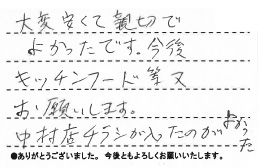 大変安くて親切で
よかったです。今後
キッチンフード等又
お願いします。
中村店チラシが入ったのがよかった
●ありがとうございました。今後ともよろしくお願いいたします。